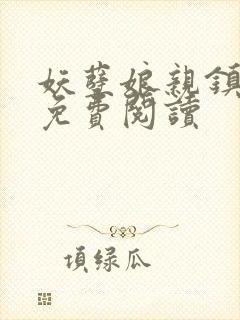 妖孽娘親鎮
免費閱讀
頂綠瓜